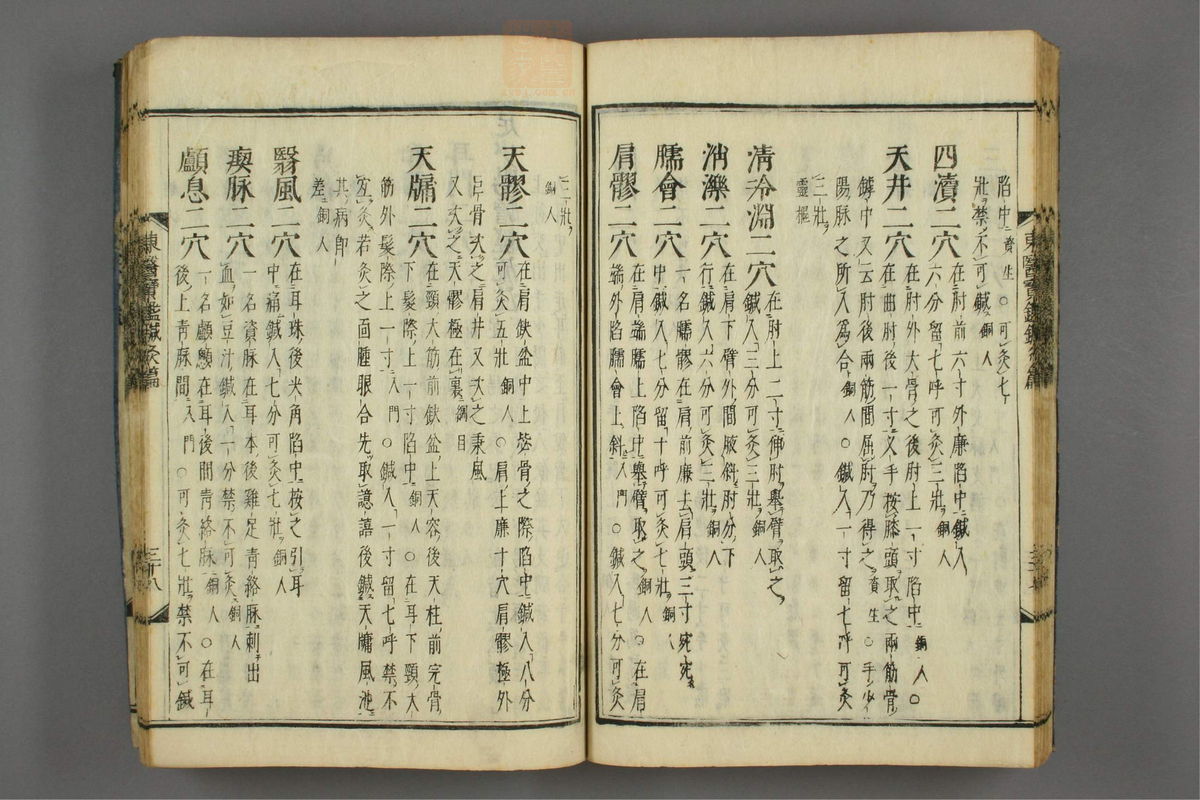 陷中資生○可灸七
壯禁不可鍼銅人
四瀆二穴在肘前六寸外廉陷中鍼入
六分留七呼可灸三壯銅人
天井二穴在肘外大骨之後肘上一寸陷中銅人○
在曲肘後一寸叉手按膝頭取之兩筋骨
罅中又云肘後兩筋間屈肘乃得之資生○手少
陽脉之所入爲合銅人○鍼入一寸留七呼可灸
三壯
靈樞
淸冷淵二穴在肘上二寸伸肘擧臂取之
鍼入三分可灸三壯銅人
消濼二穴在肩下臂外間腋斜肘分下
行鍼入六分可灸三壯銅人
臑會二穴一名臑髎在肩前廉去肩頭三寸宛宛
中鍼入七分留十呼可灸七壯銅人
肩髎二穴在肩端臑上陷中擧臂取之銅人○在肩
端外陷臑會上斜入門○鍼入七分可灸
三壯
銅人
天髎二穴在肩缺盆中上毖骨之際陷中鍼入八分
可灸五壯銅人○肩上廉十穴肩髎極外
巨骨次之肩井又次之秉風
又次之天髎極在裏綱目
天牖二穴在頸大筋前缺盆上天容後天柱前完骨
下髮際上一寸陷中銅人○在耳下頸大
筋外髮際上一寸入門○鍼入一寸留七呼禁不
宜灸若灸之面腫眼合先取譩譆後鍼天牖風池
其病卽
差銅人
翳風二穴在耳珠後尖角陷中按之引耳
中痛鍼入七分可灸七壯銅人
瘈脉二穴一名資脉在耳本後雞足靑絡脉刺出
血如豆汁鍼入一分禁不可灸銅人
顱息二穴一名顱顖在耳後間靑絡脉銅人○在耳
後上靑脉間入門○可灸七壯禁不可鍼
東醫寶鑑鍼灸篇
三十八